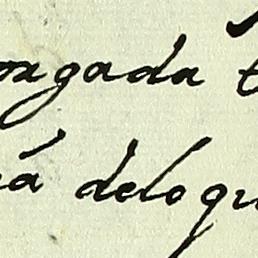 orgada
á deloqu